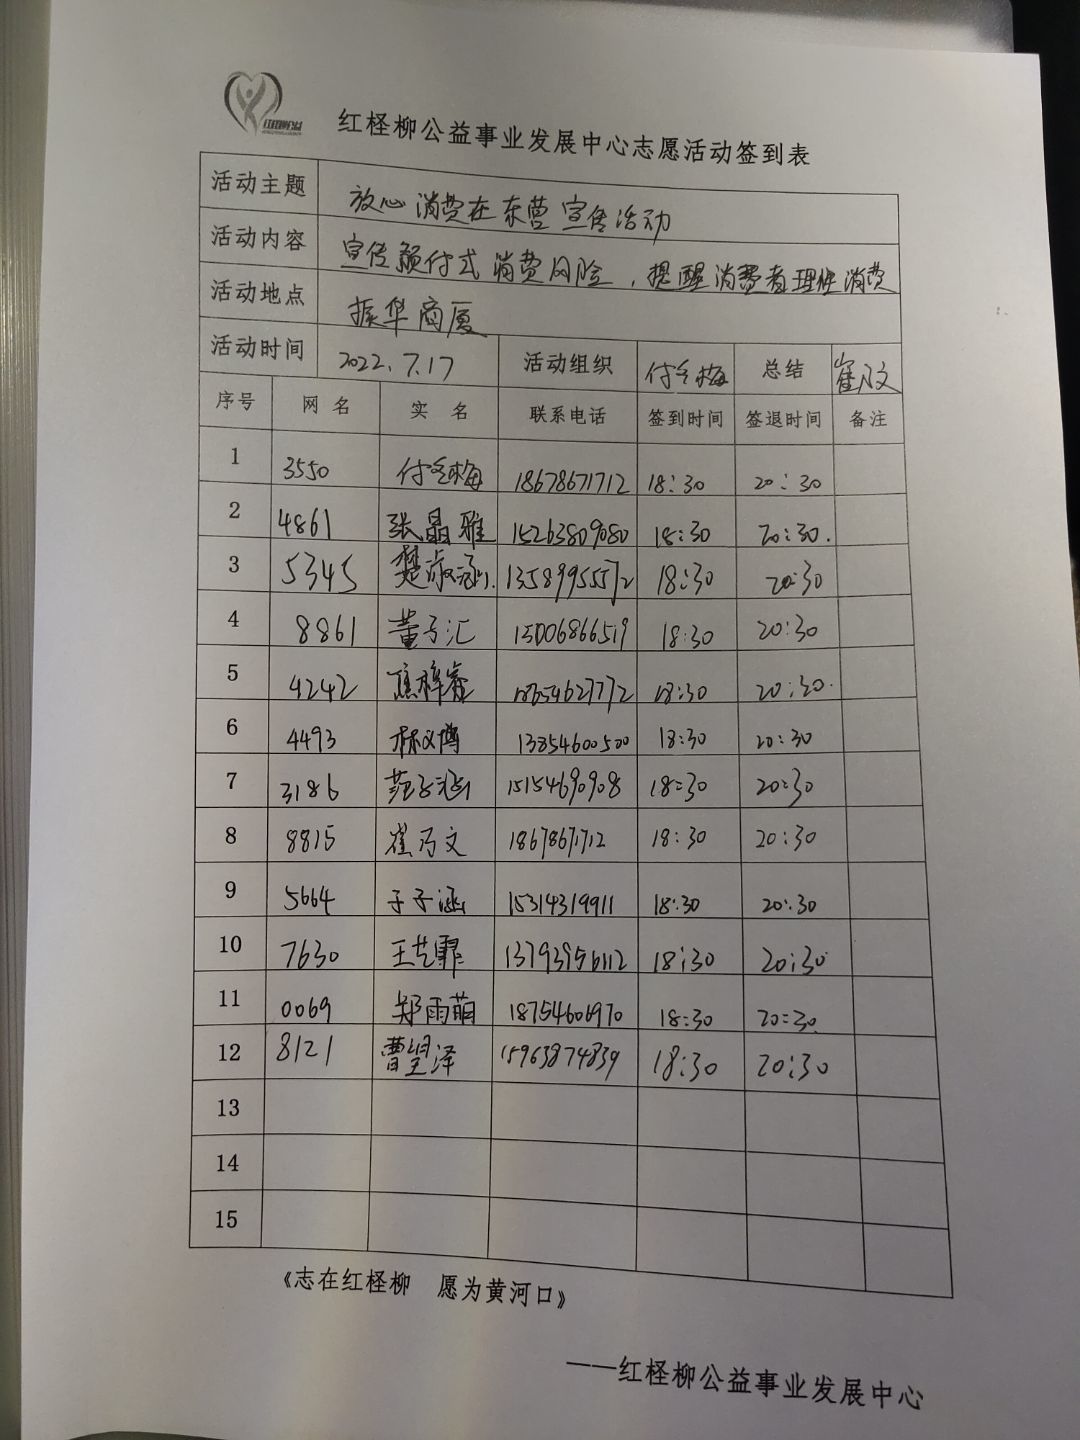 红柽柳公益事业发展中心志愿活动签到表
活动主题 放心消费在东营宣传活动
活动内容 宣传预付式消费风险，提醒消费者理性消费
活动地点 振华商厦
活动时间 2022.7.17 活动组织 付冬梅 总结 崔乃文
序号 网名 实名 联系电话 签到时间 签退时间 备注
1 3550 付冬梅 18678671712 18:30 20:30
2 4861 张晶雅 15263809080 18:30 20:30.
3 5345 楚淑涵 13589955572 18:30 20:30
4 8861 董子汇 15006866519 18:30 20:30
5 4242 18654627772 18:30 20:30.
6 4493 林义博 13854600500 18:30 20:30
7 3186 范子涵 15154690908 18:30 20:30
8 8815 崔乃文 18678671712 18:30 20:30
9 5664 于子涵 15314319911 18:30 20:30
10 7630 王艺霏 13793956112 18:30 20:30
11 0069 郑雨萌 18754606970 18:30 20:30
12 8121 曹望泽 15963874839 18:30 20:30
13
14
15
《志在红柽柳 愿为黄河口》
——红柽柳公益事业发展中心